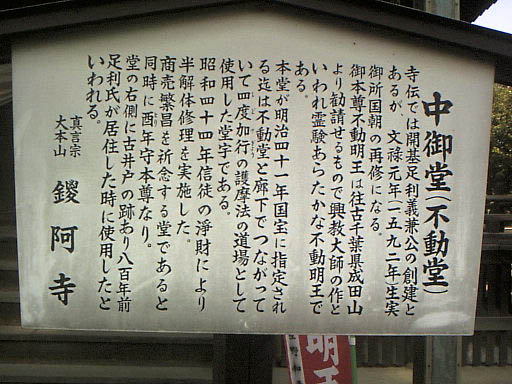 中御堂(不動堂)
寺伝では開基足利義兼公の創建と
あるが、文禄元年(一五九二年)生実
御所国朝の再修になる。
御本尊不動明王は往古千葉県成田山
より勧請せるもので興教大師の作と
いわれ霊験あらたかな不動明王で
ある。
本堂が明治四十一年国宝に指定され
る迄は不動堂と廊下でつながって
いて四度加行の護摩法の道場として
使用した堂宇である。
昭和四十四年信徒の浄財により
半解体修理を実施した。
商売繁昌を祈念する堂であると
同時に酉年守本尊なり。
堂の右側に古井戸の跡あり八百年前
足利氏が居住した時に使用したと
いわれる。
真言宗
大本山
鑁阿寺
明王